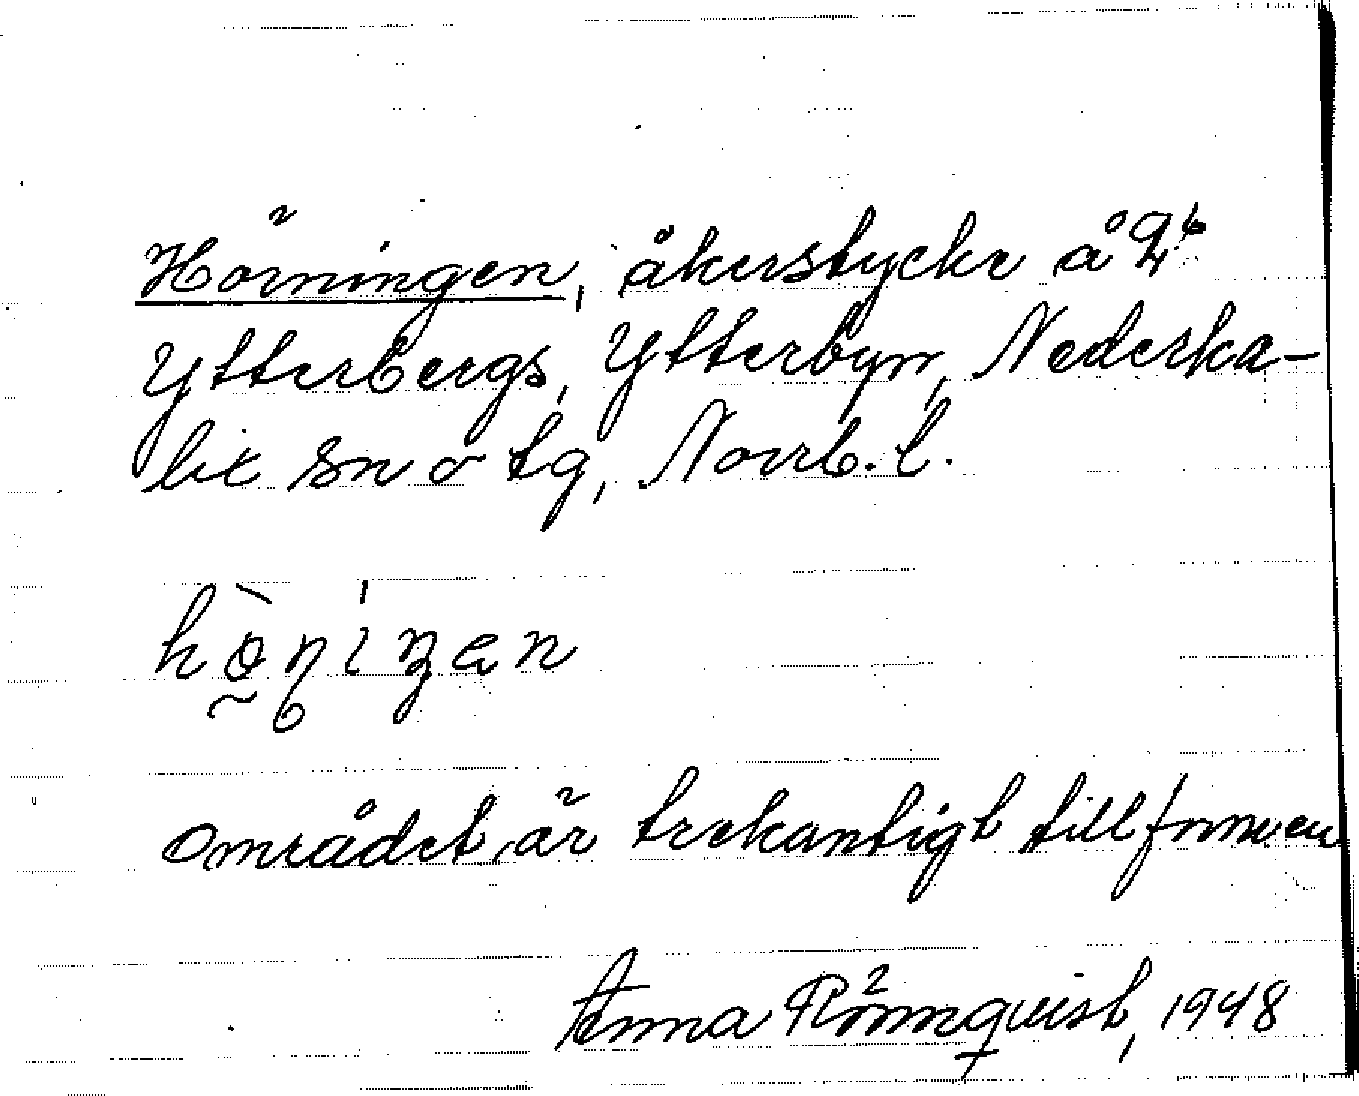 Hörningen, åkerstycke å 24
Ytterbergs, Ytterbyn, Nederka-
lix sn o tg, Norrb. l.
hö̀ṇiŋen
Området är trekantigt till formen
Anna Rönnqvist, 1948